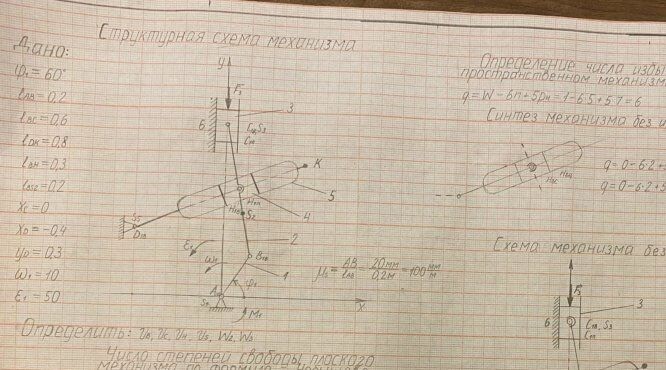 Структурная схема механизма
Дано:
φ₁=60°
lAB=0,2
lBC=0,6
lDK=0,8
lBH=0,3
lBS2=0,2
XC=0
XD=-0,4
YD=0,3
ω₁=10
ε₁=50
y
F₃
3
6
C₁В,S₃
K
5
4
S₂
2
S₅
D₁В
ε₁
ω₁
B₁В
1
φ₁
M₁
x
μₛ=AB/lAB=20мм/0,2м=100 мм/м
Определить: υB, υC, υH, υS, W₂, W₃
Число степеней свободы плоского
механизма по формуле
Определение числа избы
пространственном механизм
q=W-6n+5pн=1-6·5+5·7=6
Синтез механизма без и
q=0-6·2+
q=0-6·2+
Схема механизма без
F₃
3
6
C₁В, S₃